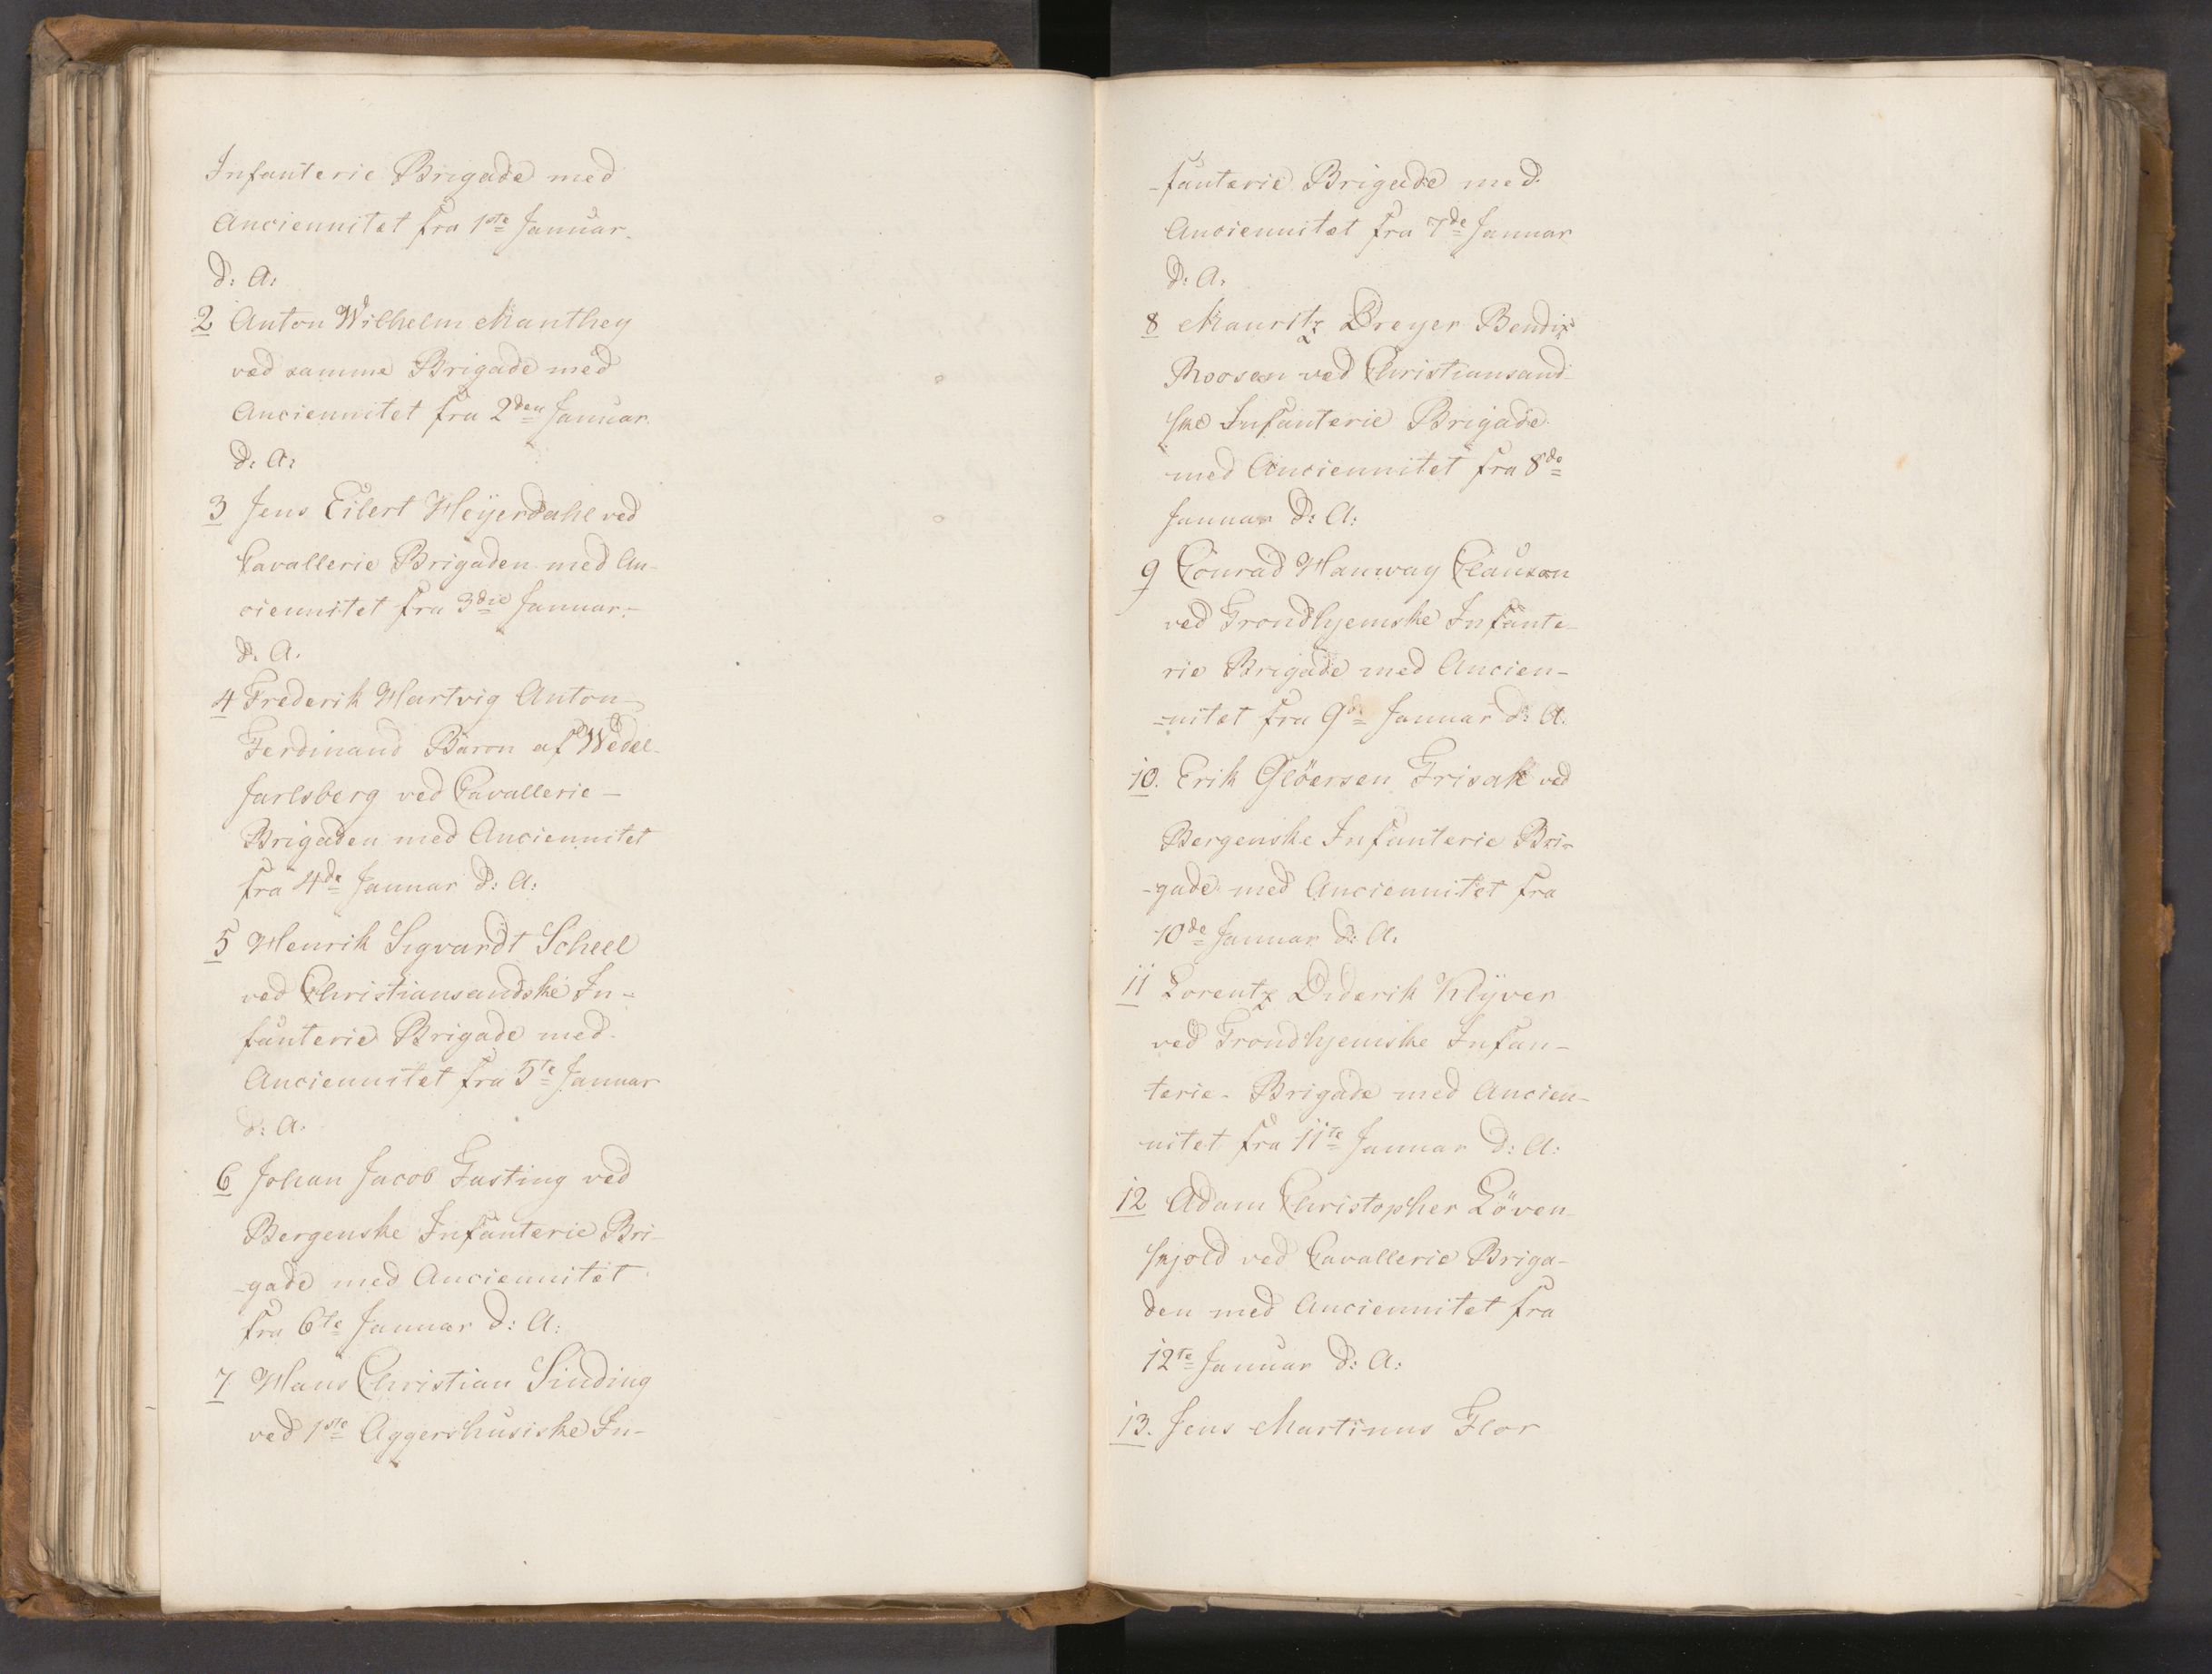 Infanterie Brigade med
Anciennitet fra 1ste Januar.
d: A:
2 Anton Wilhelm Manthey
ved samme Brigade med
Anciennitet fra 2den Januar.
d: A:
3 Jens Eilert Heÿerdahl ved
Cavallerie Brigaden med An-
ciennitet fra 3die Januar.-
d. A.
4 Frederik Hartvig Anton
Ferdinand Baron af Wedel-
Jarlsberg ved Cavallerie-
Brigaden med Anciennitet
fra 4de Januar d: A:
5 Henrik Sigvardt Scheel
ved Christiansandske In-
fanterie Brigade med.
Anciennitet fra 5te Januar
d: A.
6 Johan Jacob Fasting ved
Bergenske Infanterie Bri-
-gade med Anciennitet
fra 6te Januar d: A:
7 Hans Christian Sinding
ved 1ste Aggershusiske In-
-fanterie Brigade med
Anciennitet fra 7de Januar
d: A.
8 Mauritz Dreyer Bendix
Moosen ved Christiansand-
ske Infanterie Brigade.
med Anciennitet fra 8de
Januar d: A:
9 Conrad Hanway Clausen
ved Trondhjemske Infante-
rie Brigade med Ancien-
-nitet fra 9de Januar d: A.
10. Erik Glöersen Frisak ved
Bergenske Infanterie Bri-
-gade med Anciennitet fra
10de Januar d: A.
11 Lorentz Diderik Klÿver
ved Trondhjemske Infan-
terie- Brigade med Ancien-
nitet fra 11te Januar d: A:
12 Adam Christopher Löven-
skjold ved Cavallerie Briga-
den med Anciennitet fra
12te Januar d: A:
13. Jens Martinus Flor